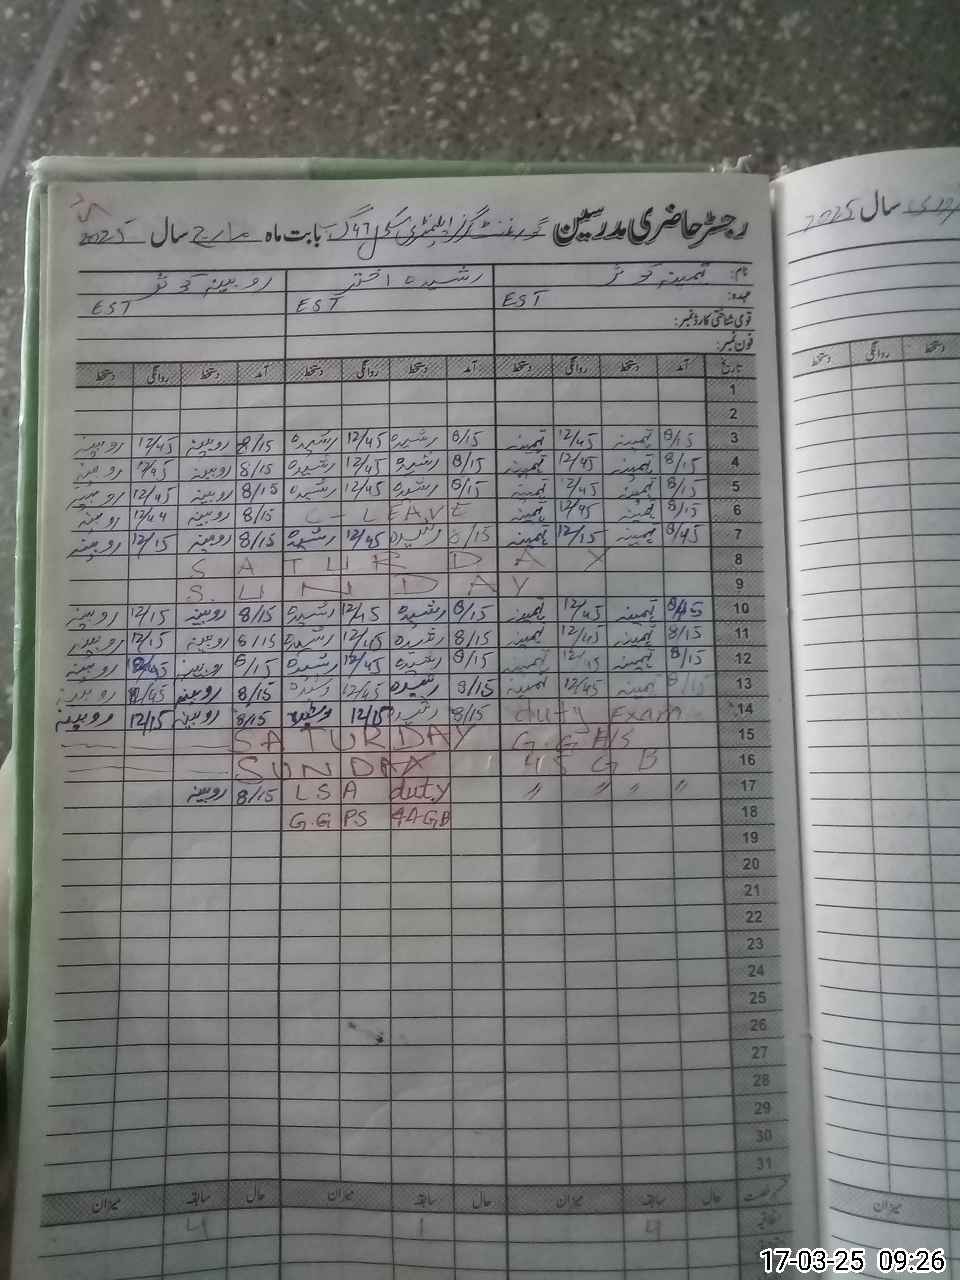 رجسٹر حاضری مدرسین گورنمنٹ گرلز ایلیمنٹری سکول 47 گ ب بابت ماہ مارچ سال 2025
نام: ثمینہ کوثر رشیدہ اختر روبینہ کوثر
عہدہ: EST EST EST
قومی شناختی کارڈ نمبر:
فون نمبر:
تاریخ آمد دستخط روانگی دستخط آمد دستخط روانگی دستخط آمد دستخط روانگی دستخط
1
2
3 8/15 ثمینہ 12/45 ثمینہ 8/15 رشیدہ 12/45 رشیدہ 8/15 روبینہ 12/45 روبینہ
4 8/15 ثمینہ 12/45 ثمینہ 8/15 رشیدہ 12/45 رشیدہ 8/15 روبینہ 12/45 روبینہ
5 8/15 ثمینہ 12/45 ثمینہ 8/15 رشیدہ 12/45 رشیدہ 8/15 روبینہ 12/45 روبینہ
6 8/15 ثمینہ 12/45 ثمینہ C - LEAVE 8/15 روبینہ 12/44 روبینہ
7 8/45 ثمینہ 12/15 ثمینہ 8/15 رشیدہ 12/45 رشیدہ 8/15 روبینہ 12/15 روبینہ
8 SATURDAY
9 SUNDAY
10 8/45 ثمینہ 12/45 ثمینہ 8/15 رشیدہ 12/45 رشیدہ 8/15 روبینہ 12/15 روبینہ
11 8/15 ثمینہ 12/45 ثمینہ 8/15 رشیدہ 12/45 رشیدہ 8/15 روبینہ 12/15 روبینہ
12 8/15 ثمینہ 12/45 ثمینہ 8/15 رشیدہ 12/45 رشیدہ 8/15 روبینہ روبینہ
13 8/15 ثمینہ 12/45 ثمینہ 8/15 رشیدہ 12/45 رشیدہ 8/15 روبینہ 12/45 روبینہ
14 duty Exam 8/15 رشیدہ 12/15 رشیدہ 8/15 روبینہ 12/15 روبینہ
15 SATURDAY G.GHS
16 SUNDAY 45 GB
17 " " " " LSA duty 8/15 روبینہ
18 G.GPS 44GB
19
20
21
22
23
24
25
26
27
28
29
30
31
قسم رخصت حال سابقہ میزان حال سابقہ میزان حال سابقہ میزان
اتفاقیہ 4 1 4
سال 2025
دستخط روانگی دستخط
میزان
17-03-25 09:26